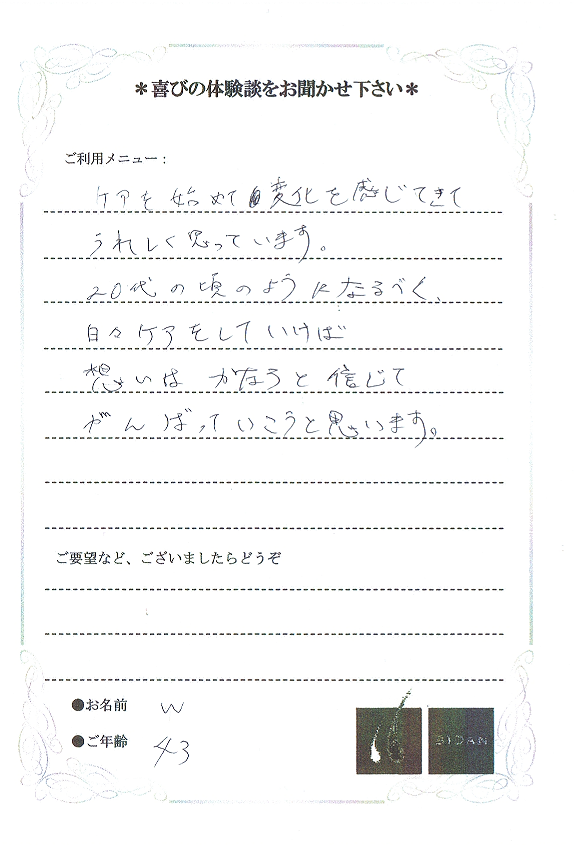 ＊喜びの体験談をお聞かせ下さい＊
ご利用メニュー：
ケアを始めて変化を感じてきて
うれしく思っています。
20代の頃のようになるべく、
日々ケアをしていけば
想いはかなうと信じて
がんばっていこうと思います。
ご要望など、ございましたらどうぞ
●お名前 W
●ご年齢 43
BIDAN